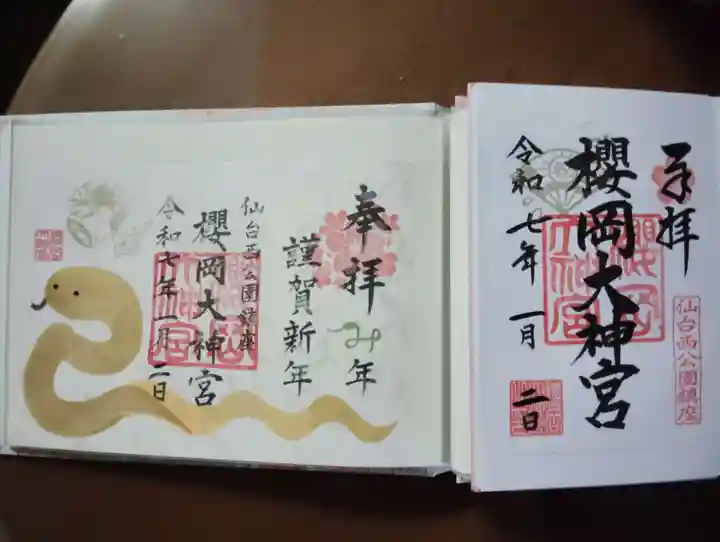 奉拝
櫻岡大神宮
令和七年一月二日
仙台西公園鎮座
櫻岡大神宮
奉拝み年
謹賀新年
仙台西公園鎮座
櫻岡大神宮
令和七年一月二日
櫻岡大神宮